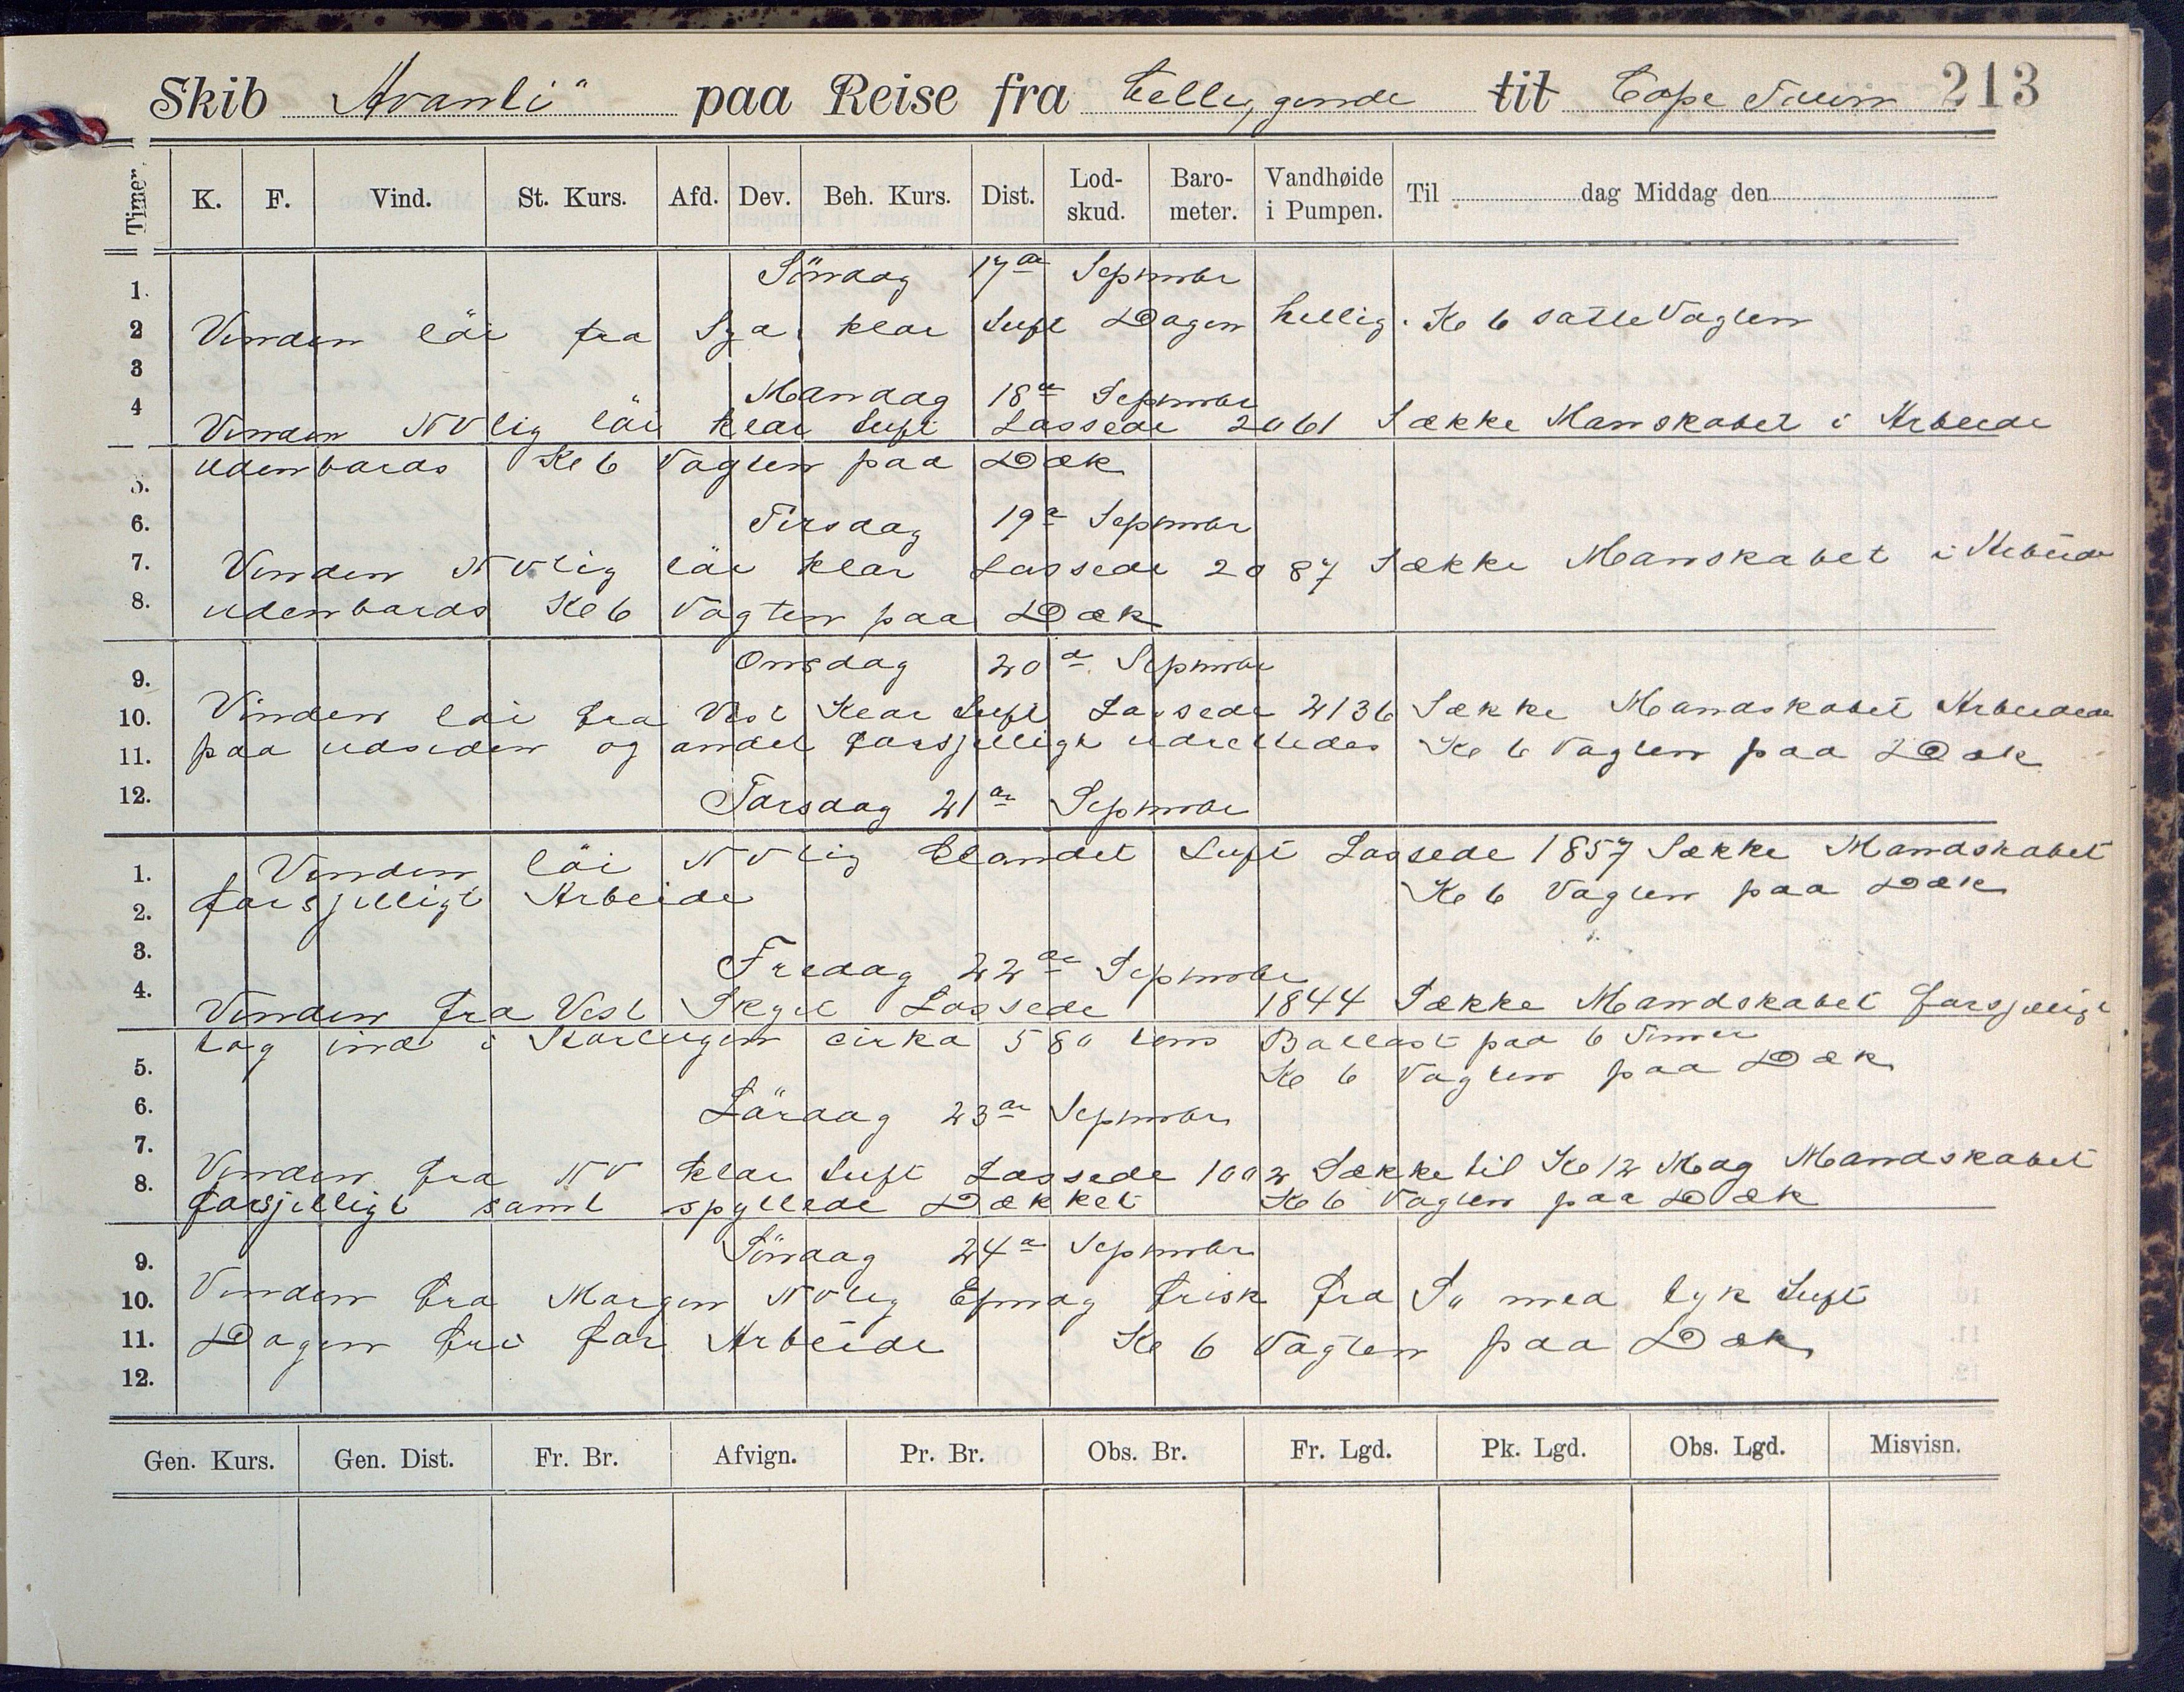 213
Skib "Avanti" paa Reise fra tilliggende til Cape Town
Timer. K. F. Vind. St. Kurs. Afd. Dev. Beh. Kurs. Dist. Lod-skud. Baro-meter. Vandhøide i Pumpen. Til dag Middag den
Söndag 17de Septmber
1.
2 Vinden löi fra Syd. klar Luft Dagen hellig. Kl 6 satte Vagten
3
Mandag 18de Septmber
4 Vinden NVlig löi klar Luft Lossede 2061 Sække Manskabet i Arbeide
udenbords Kl 6 Vagten paa Dæk
5.
6. Tirsdag 19de Septmber
7. Vinden NVlig löi klar Lossede 2087 Sække Manskabet i Arbeide
8. udenbords Kl 6 Vagten paa Dæk
Onsdag 20de Septmber
9.
10. Vinden löi fra Vest Klar Luft Lossede 2136 Sække Mandskabet Arbeidede
11. paa udsiden og andet forsjelligt udrettedes Kl 6 Vagten paa Dæk
12. Torsdag 21de Septmber
1. Vinden löi NVlig blandet Luft Lossede 1857 Sække Mandskabet
2. forsjelligt Arbeide Kl 6 Vagten paa Dæk
3. Fredag 22de Septmber
4. Vinden fra Vest Skyet Lossede 1844 Sække Mandskabet forsjeligt
tog ind i Storlugen cirka 580 tons Ballast paa 6 Timer
5. Kl 6 Vagten paa Dæk
6. Lördag 23de Septmber
7.
8. Vinden fra NV klar Luft Lossede 1002 Sække til Kl 12 Mdg Mandskabet
forsjelligt samt spyllede Dækket Kl 6 Vagten paa Dæk
9. Söndag 24de Septmber
10. Vinden fra Morgen NVlig Efmdg frisk fra So med tyk Luft
11. Dagen fri for Arbeide Kl 6 Vagten paa Dæk
12.
Gen. Kurs. Gen. Dist. Fr. Br. Afvign. Pr. Br. Obs. Br. Fr. Lgd. Pk. Lgd. Obs. Lgd. Misvisn.